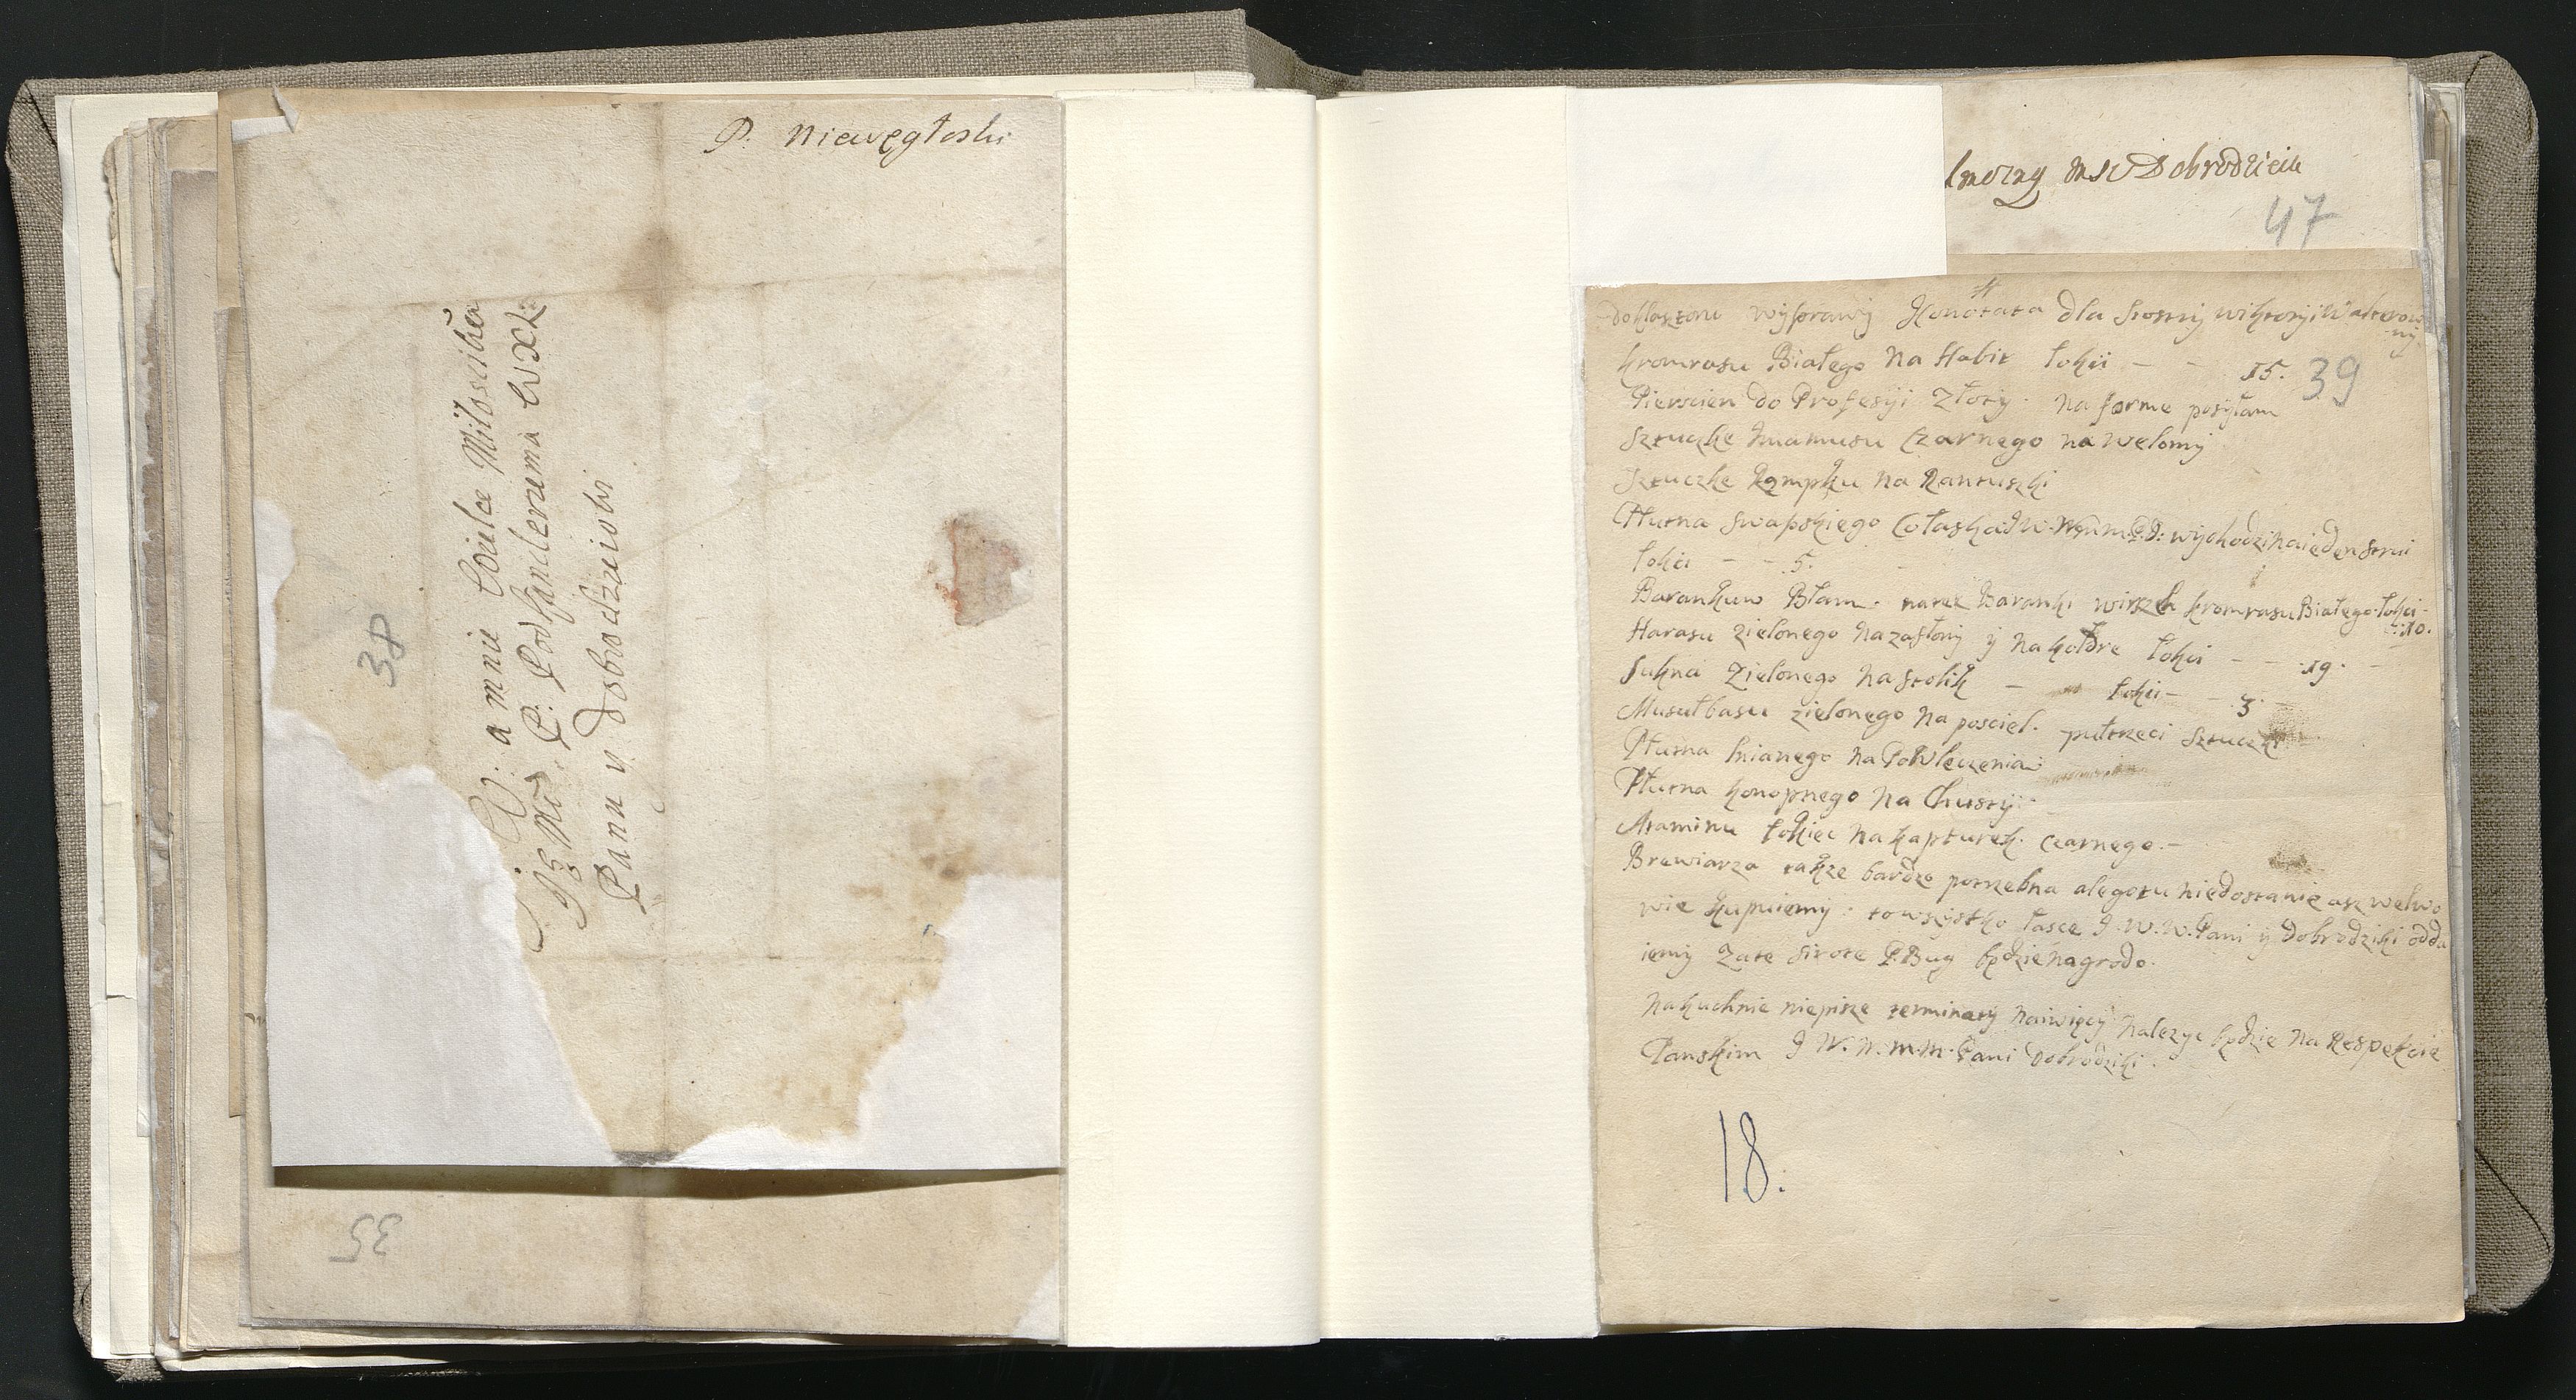 P. Niewęgłoski
W. a mnie Wielce Miłosciwe
JE Mci P. Podskarbiemu WXL
Panu y Dobrodzieiowi
38
35
Dobrodzieiu
47
do klasztoru wyprawy Konotata dla Siostry wiktoryi
kromrasu Białego Na Habit łokci - - 15.
39
Pierscien do Profesyi Złoty. na forme posyłam
Sztuczke Czarnego na welomy
Sztuczke Rąmpku na Rantuszki
Płutna swapskiego wychodzi na ieden
łokci - - 5.
Barankuw Błam. Baranki wirzch kromrasu Białego łokci - 10.
Harasu zielonego na zasłony y na kołdre łokci - - 19. -
Sukna Zielonego na stolik - łokci - - 3. -
Musułbasu zielonego na posciel. pułtrzeci sztuczki
Płutna lnianego na Powleczenia:
Płutna konopnego na Chusty:-
Ataminu łokiec na kapturek. czarnego.-
Brewiarza takze bardzo potrzebna alegotu niedostanie asz welwo
wie kupuiemy: towszystko łasce J. W. W. Pani y Dobrodziki odda
iemy Zate sirote P. Bug będzie nagrodo.
Na kuchnie niepisze terminaty naiwięcy nalezyc będzie na Respekcie
Panskim J W. W. m. m. Pani Dobrodziki.
18.